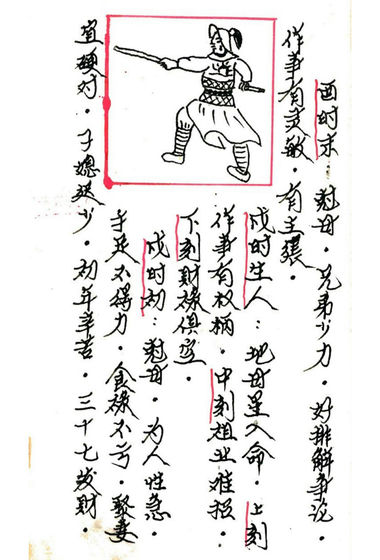 酉时末：尅母。兄弟少力。好排解事说。
作事有灵敏。有主張。
戌时生人：地母星入命。上刻
作事有权柄。中刻祖业难招。
下刻財祿俱空。
戌时初：尅母。为人性急。
手足不得力。食祿不亏。娶妻
宜硬对。子媳迟少。初年辛苦。三十七发財。